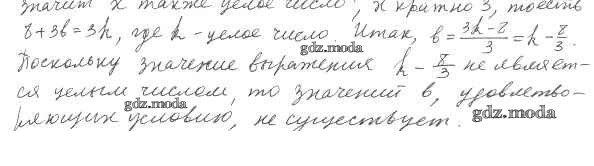 значит x также целое число, x кратно 3, то есть
8+3b=3k, где k - целое число. Итак, b = (3k-8)/3 = k - 8/3.
gdz.moda
Поскольку значение выражения k - 8/3 не являет-
ся целым числом, то значений b, удовлетво-
gdz.moda
ряющих условию, не существует.
gdz.moda